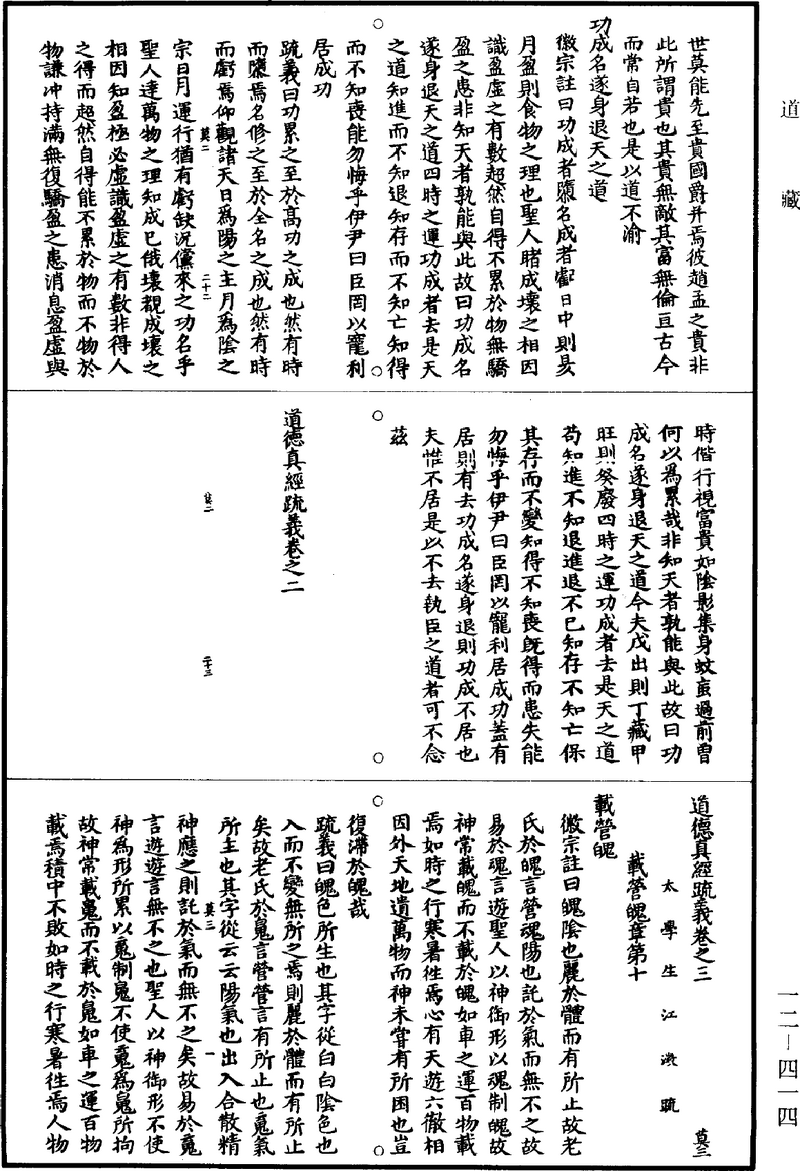 道藏
世莫能先至貴國爵并焉彼趙孟之貴非
此所謂貴也其貴無敵其富無倫亘古今
而常自若也是以道不渝
功成名遂身退天之道
徽宗註曰功成者隳名成者虧日中則昃
月盈則食物之理也聖人睹成壞之相因
識盈虛之有數超然自得不累於物無驕
盈之患非知天者孰能與此故曰功成名
遂身退天之道四時之運功成者去是天
之道知進而不知退知存而不知亡知得
而不知喪能勿悔乎伊尹曰臣罔以寵利
居成功
疏義曰功累之至於高功之成也然有時
而隳焉名修之至於全名之成也然有時
而虧焉仰觀諸天日為陽之主月為陰之
莫二 二十二
宗日月運行猶有虧缺況儻來之功名乎
聖人達萬物之理知成已俄壞覩成壞之
相因知盈極必虛識盈虛之有數非得人
之得而超然自得能不累於物而不物於
物謙沖持滿無復驕盈之患消息盈虛與
時偕行視富貴如陰影集身蚊虻過前曾
何以為累哉非知天者孰能與此故曰功
成名遂身退天之道今夫戊出則丁藏甲
旺則癸廢四時之運功成者去是天之道
苟知進不知退進退不已知存不知亡保
其存而不變知得不知喪既得而患失能
勿悔乎伊尹曰臣罔以寵利居成功蓋有
居則有去功成名遂身退則功成不居也
夫惟不居是以不去執臣之道者可不念
茲
道德真經疏義卷之二
莫二 二十三
道德真經疏義卷之三 莫三
太學生江澂疏
載營魄章第十
載營魄
徽宗註曰魄陰也麗於體而有所止故老
氏於魄言營魂陽也託於氣而無不之故
易於魂言遊聖人以神御形以魂制魄故
神常載魄而不載於魄如車之運百物載
焉如時之行寒暑往焉心有天遊六徹相
因外天地遺萬物而神未嘗有所困也豈
復滯於魄哉
疏義曰魄色所生也其字從白白陰色也
入而不變無所之焉則麗於體而有所止
矣故老氏於䰟言營營言有所止也䰟氣
所主也其字從云云陽氣也出入合散精
莫三 一
神應之則託於氣而無不之矣故易於䰟
言遊遊言無不之也聖人以神御形不使
神為形所累以䰟制䰟不使䰟為䰟所拘
故神常載䰟而不載於䰟如車之運百物
載焉積中不敗如時之行寒暑往焉人物
一二—四一四